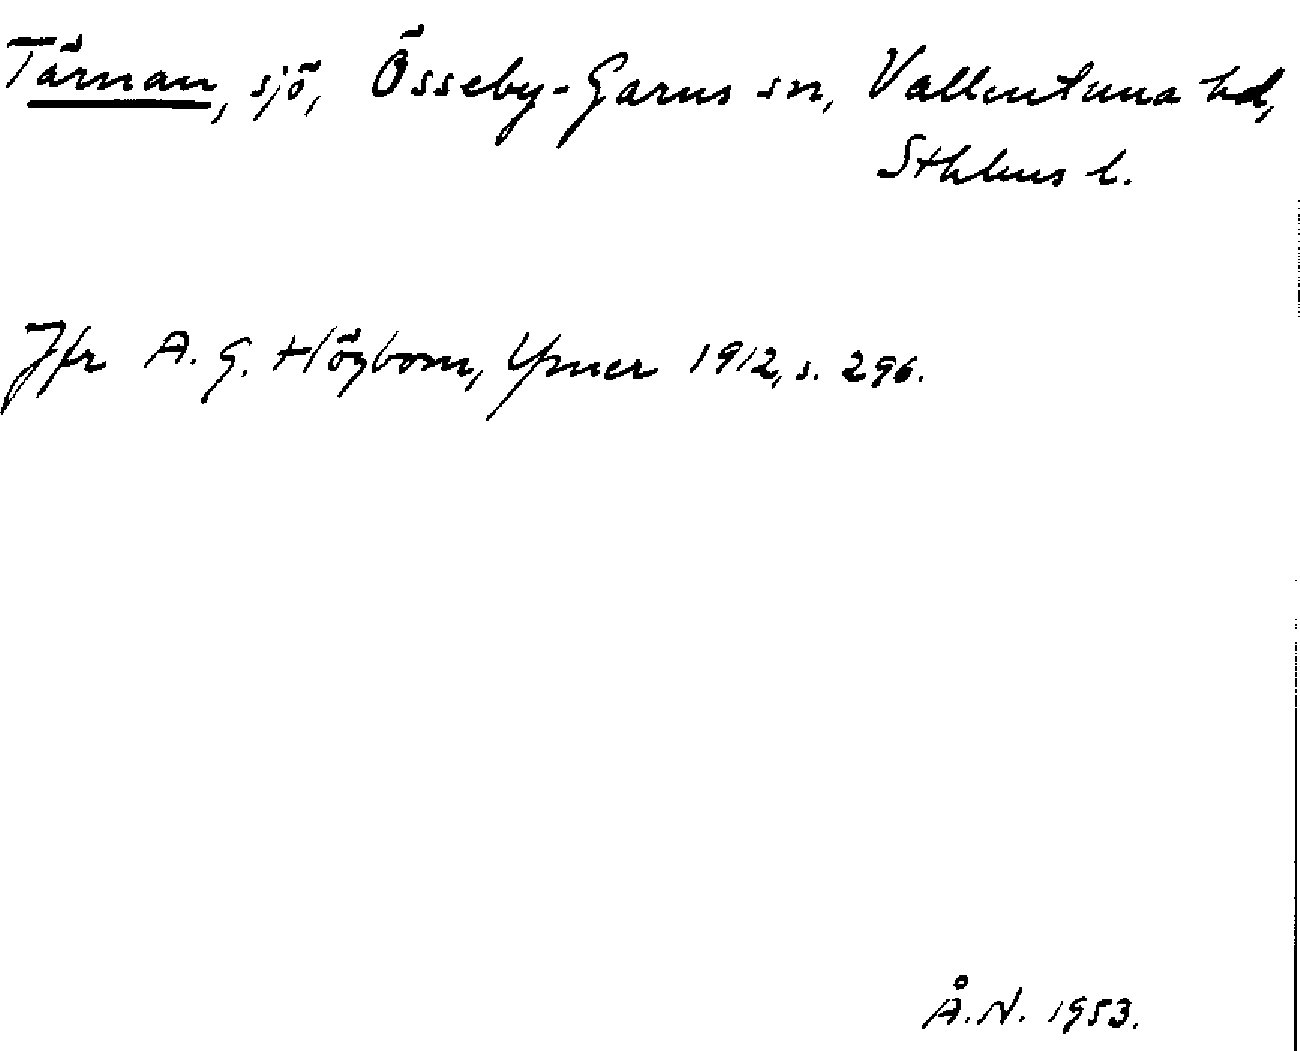 Tärnan, sjö, Össeby-Garns sn, Vallentuna hd,
Sthlms l.
Jfr A. G. Högbom, Ymer 1912, s. 296.
Å. N. 1953.